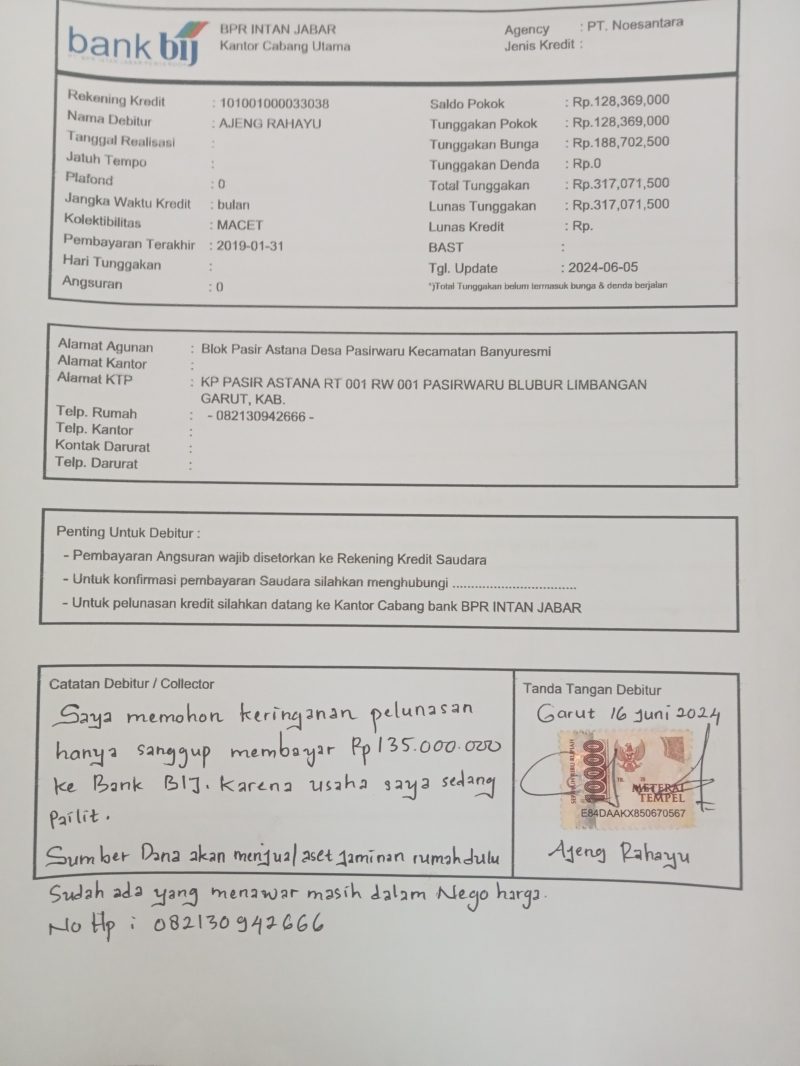 bank bij
BPR INTAN JABAR
Kantor Cabang Utama
Agency : PT. Noesantara
Jenis Kredit :
Rekening Kredit : 101001000033038
Nama Debitur : AJENG RAHAYU
Tanggal Realisasi :
Jatuh Tempo :
Plafond : 0
Jangka Waktu Kredit : bulan
Kolektibilitas : MACET
Pembayaran Terakhir : 2019-01-31
Hari Tunggakan :
Angsuran : 0
Saldo Pokok : Rp.128,369,000
Tunggakan Pokok : Rp.128,369,000
Tunggakan Bunga : Rp.188,702,500
Tunggakan Denda : Rp.0
Total Tunggakan : Rp.317,071,500
Lunas Tunggakan : Rp.317,071,500
Lunas Kredit : Rp.
BAST :
Tgl. Update : 2024-06-05
*)Total Tunggakan belum termasuk bunga & denda berjalan
Alamat Agunan : Blok Pasir Astana Desa Pasirwaru Kecamatan Banyuresmi
Alamat Kantor :
Alamat KTP : KP PASIR ASTANA RT 001 RW 001 PASIRWARU BLUBUR LIMBANGAN
GARUT, KAB.
Telp. Rumah : - 082130942666 -
Telp. Kantor :
Kontak Darurat :
Telp. Darurat :
Penting Untuk Debitur :
- Pembayaran Angsuran wajib disetorkan ke Rekening Kredit Saudara
- Untuk konfirmasi pembayaran Saudara silahkan menghubungi .................................
- Untuk pelunasan kredit silahkan datang ke Kantor Cabang bank BPR INTAN JABAR
Catatan Debitur / Collector
Saya memohon keringanan pelunasan
hanya sanggup membayar Rp 135.000.000
ke Bank BIJ. Karena usaha saya sedang
Pailit.
Sumber Dana akan menjual aset jaminan rumah dulu
Sudah ada yang menawar masih dalam Nego harga.
No Hp : 082130942666
Tanda Tangan Debitur
Garut 16 Juni 2024
10000
METERAI
TEMPEL
E84DAAKX850670567
Ajeng Rahayu